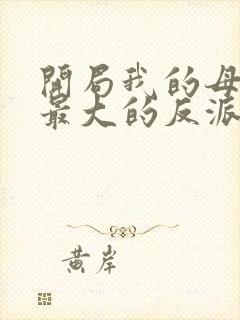 開局我的母
最大的反派
黃岸